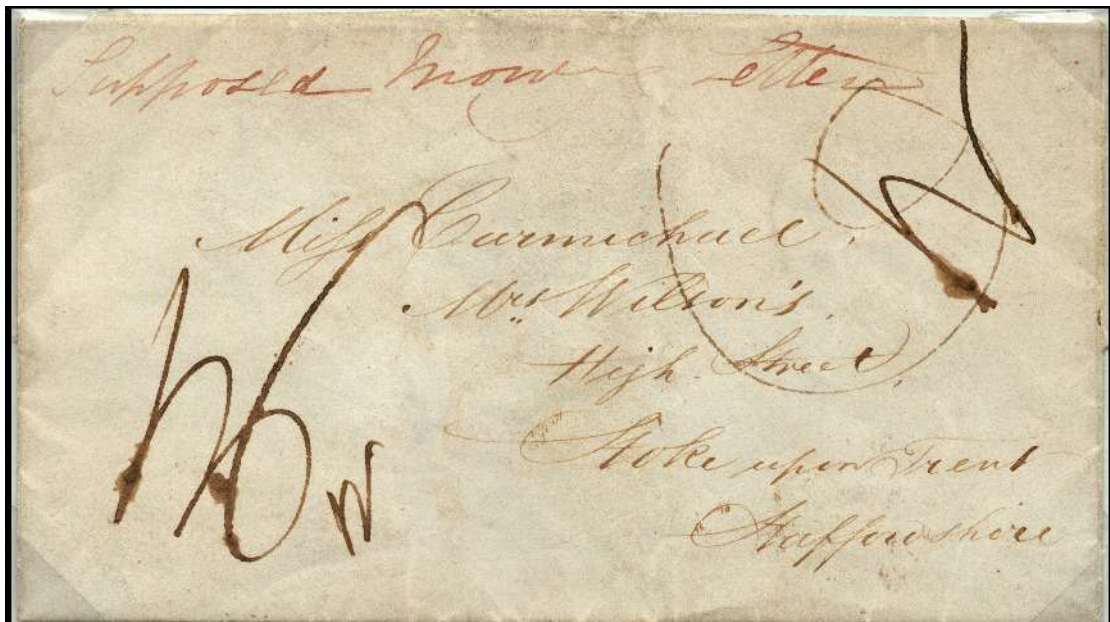 Supposed Money Letter
Miss Carmichael,
Mrs Wilson's,
High Street,
Stoke upon Trent
Staffordshire